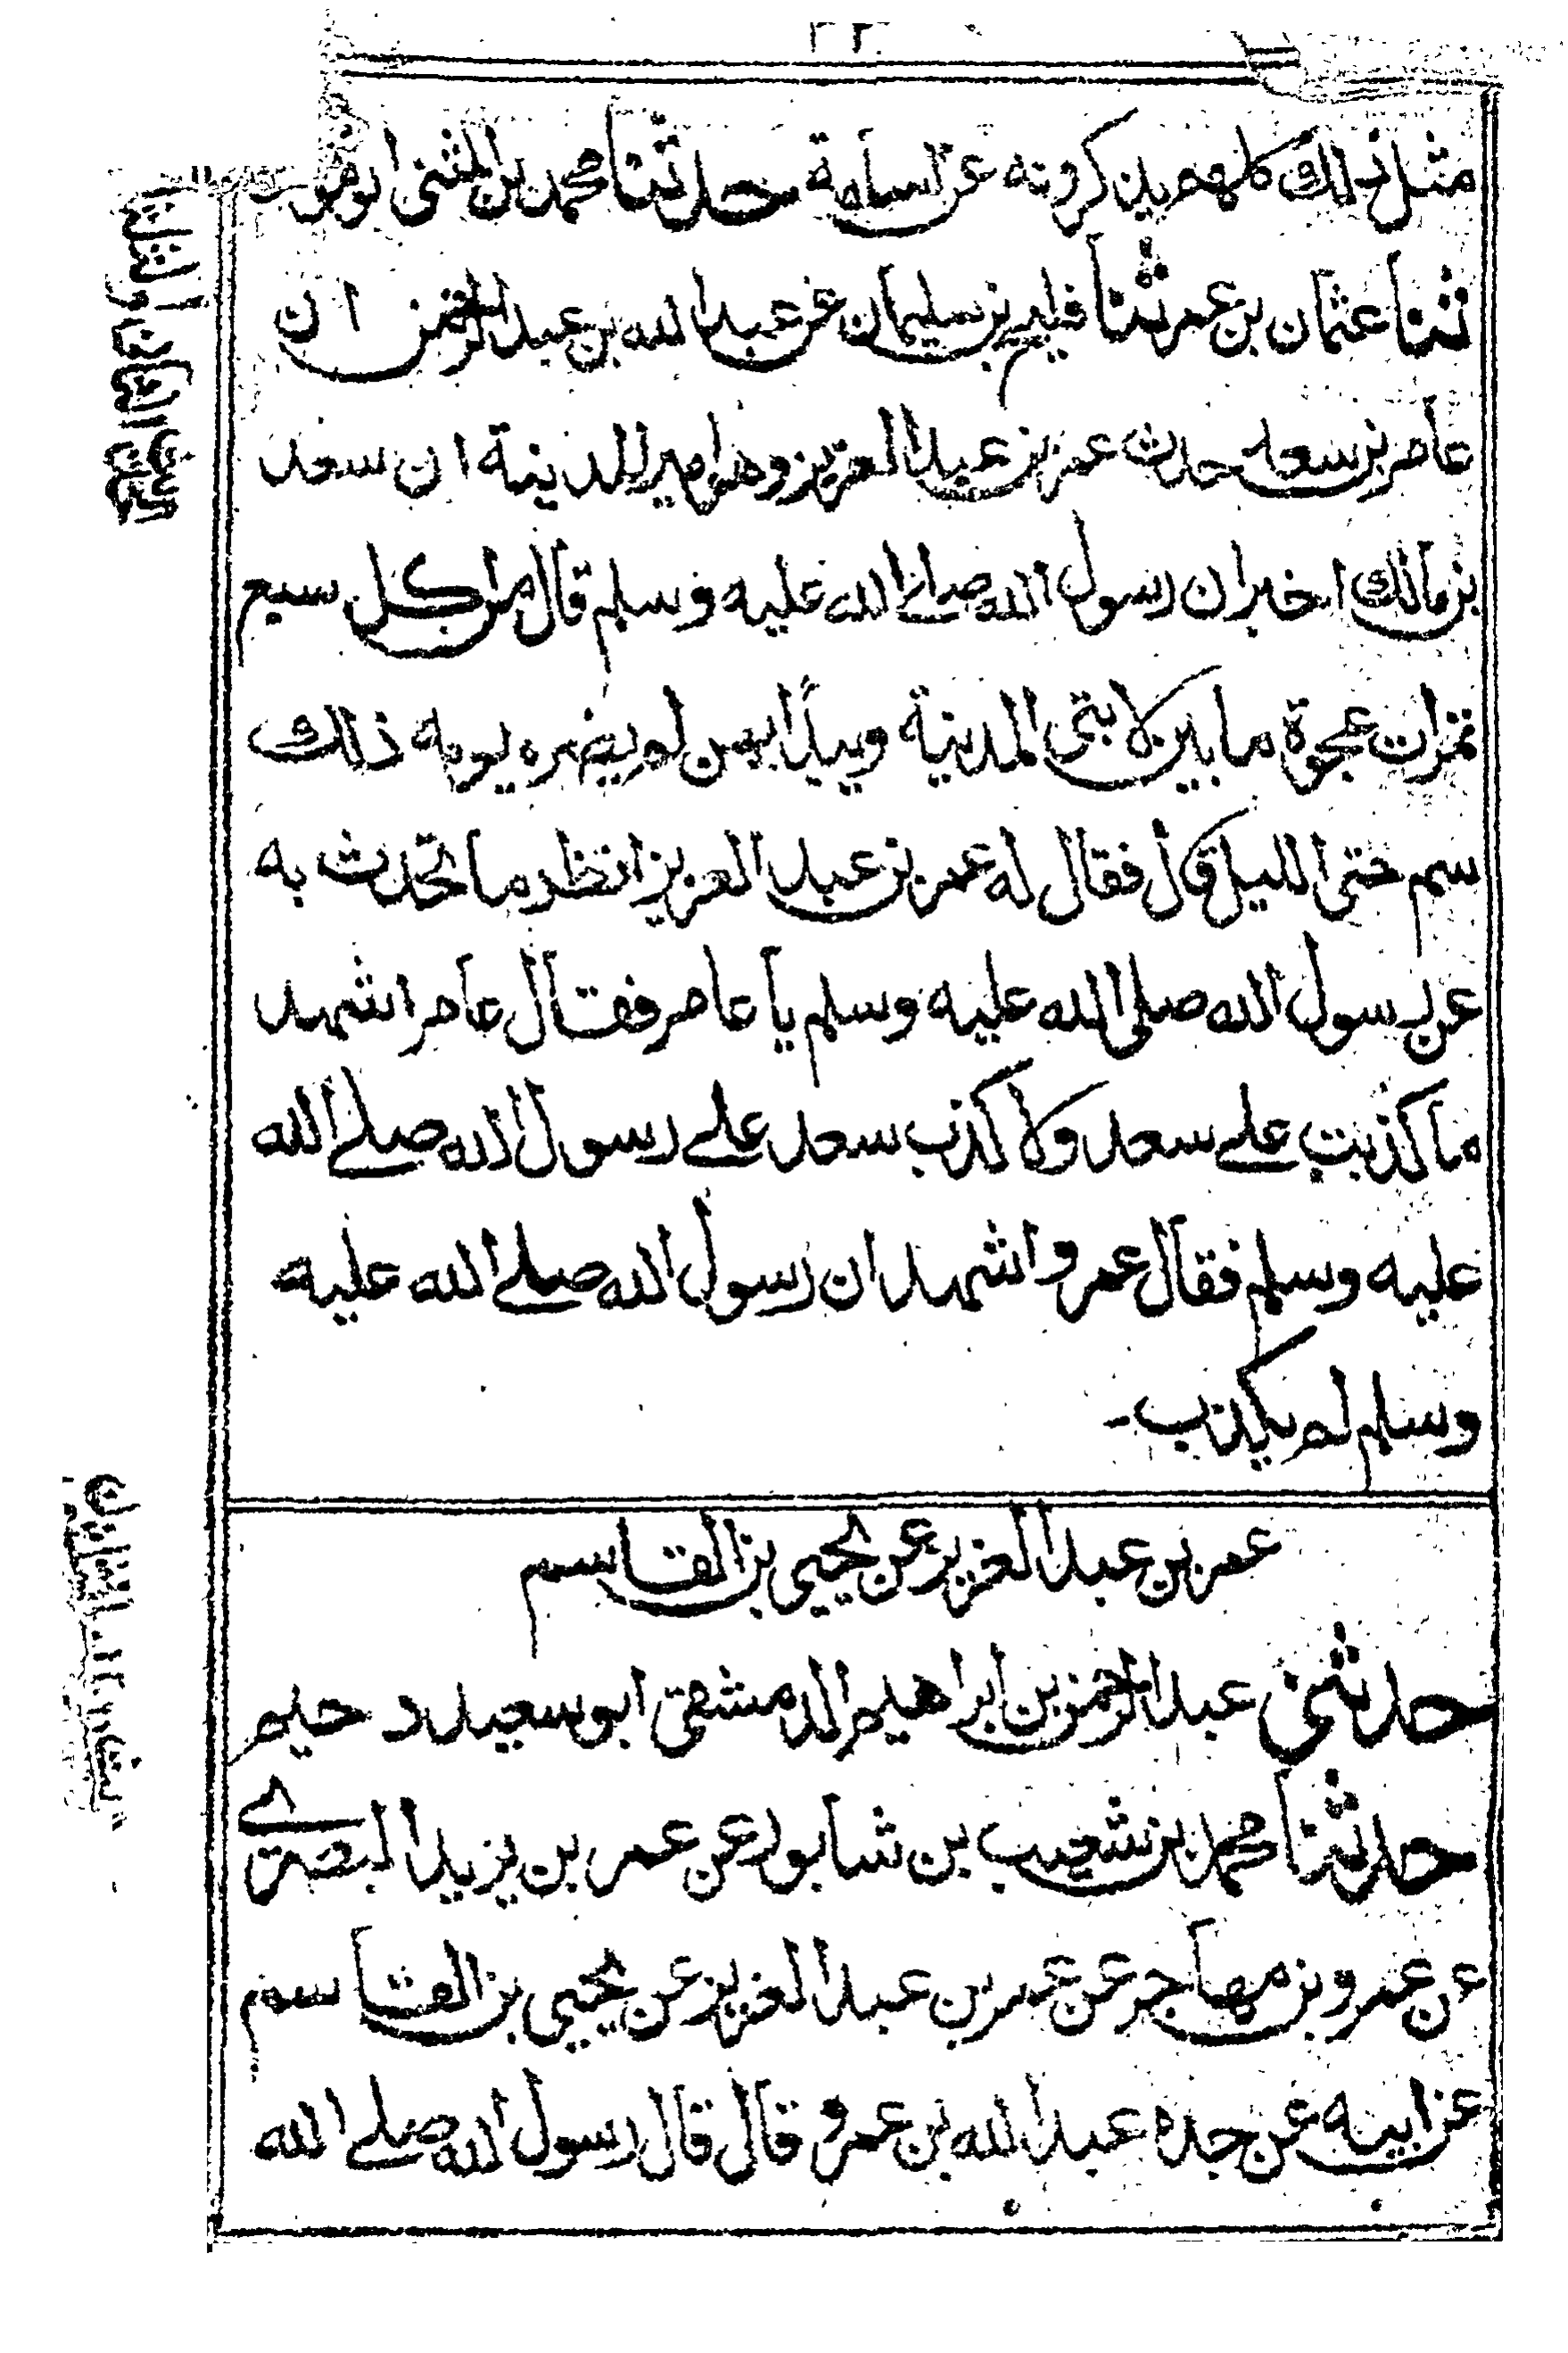 مثل ذلك كلهم يذكرونه عن أسامة حدثنا محمد بن المثنى ابو موسى
ثنا عثمان بن عمر ثنا فليح بن سليمان عن عبد الله بن عبد الرحمن ان
عامر بن سعد حدث عمر بن عبد العزيز وهو امير المدينة ان سعد
بن مالك اخبر ان رسول الله صلى الله عليه وسلم قال من اكل سبع
تمرات عجوة ما بين لابتى المدينة ويبدأ بهن لم يضره يومه ذلك
سم حتى الليل قال فقال له عمر بن عبد العزيز انظر ما تحدث به
عن رسول الله صلى الله عليه وسلم يا عامر فقال عامر اشهد
ما كذبت على سعد ولا كذب سعد على رسول الله صلى الله
عليه وسلم فقال عمر واشهد ان رسول الله صلى الله عليه
وسلم لم يكذب -
عمر بن عبد العزيز عن يحيى بن القاسم
حدثنى عبد الرحمن بن ابراهيم الدمشقى ابو سعيد دحيم
حدثنا محمد بن شعيب بن شابور عن عمر بن يزيد البصرى
عن عمرو بن مهاجر عن عمر بن عبد العزيز عن يحيى بن القاسم
عن ابيه عن جده عبد الله بن عمرو قال قال رسول الله صلى الله